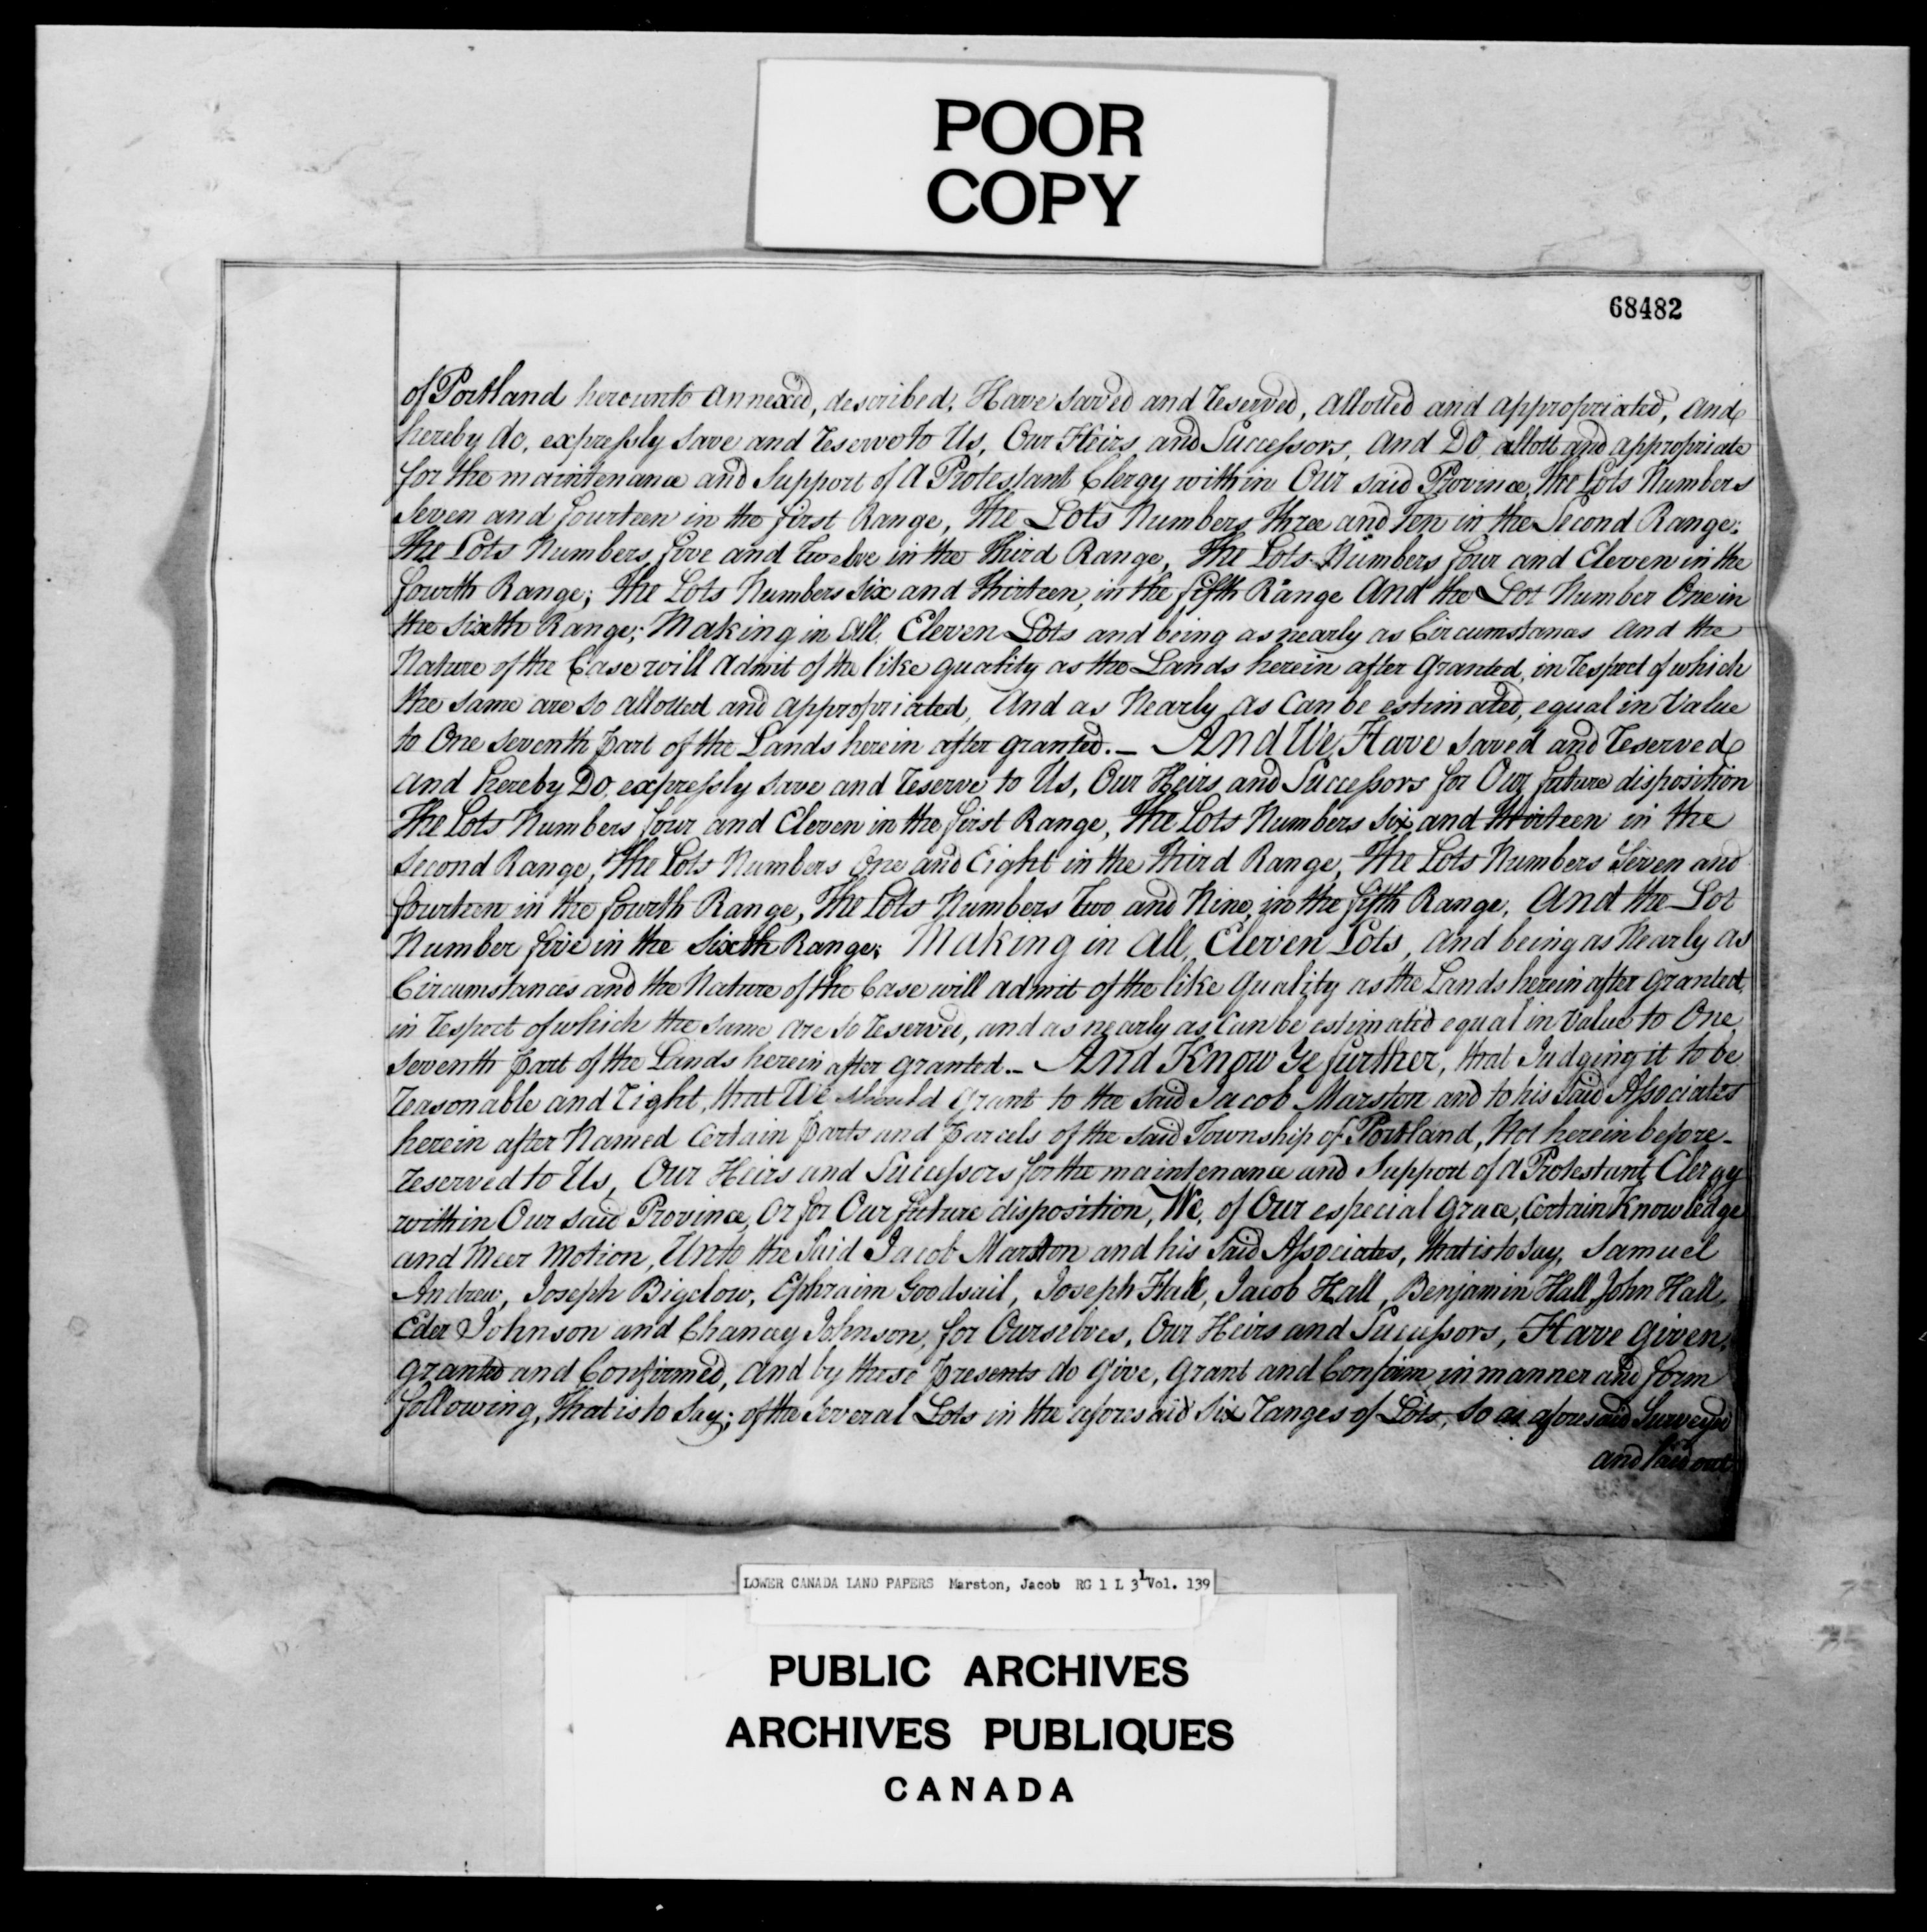 POOR
COPY
68482
of Portland hereunto annexed, described, Have saved and reserved, allotted and appropriated, and
hereby do, expressly save and reserve to Us, Our Heirs and Successors, and DO allott and appropriate
for the maintenance and Support of a Protestant Clergy within Our said Province, The Lots Numbers
Seven and fourteen in the first Range, The Lots Numbers Three and Ten in the Second Range;
The Lots Numbers five and Twelve in the Third Range, The Lots Numbers four and Eleven in the
fourth Range; The Lots Numbers Six and Thirteen, in the fifth Range And the Lot Number One in
the Sixth Range; Making in All, Eleven Lots and being as nearly as Circumstances and the
Nature of the Case will admit of the like quality as the Lands herein after granted, in respect of which
the same are so allotted and appropriated, And as Nearly as Can be estimated, equal in Value
to One seventh part of the Lands herein after granted. — And We Have saved and reserved
and hereby Do, expressly save and reserve to Us, Our Heirs and Successors for Our future disposition
The Lots Numbers four and Eleven in the first Range, The Lots Numbers six and thirteen in the
Second Range, The Lots Numbers One and Eight in the Third Range, The Lots Numbers Seven and
fourteen in the fourth Range, The Lots Numbers Two and Nine, in the fifth Range, And the Lot
Number five in the Sixth Range; Making in All, Eleven Lots, and being as Nearly as
Circumstances and the Nature of the Case will admit of the like Quality as the Lands herein after granted,
in respect of which the same are so reserved, and as nearly as Can be estimated equal in Value to One
Seventh part of the Lands herein after granted. — And Know Ye further, that Judging it to be
reasonable and right, that We should Grant to the said Jacob Marston and to his said Associates
herein after Named Certain parts and parcels of the said Township of Portland, Not herein before -
reserved to Us, Our Heirs and Successors for the maintenance and Support of a Protestant Clergy
within Our said Province, Or for Our future disposition, We, of Our especial Grace, Certain Knowledge
and Meer Motion, Unto the Said Jacob Marston and his said Associates, that is to say, Samuel
Andrew, Joseph Bigelow, Ephraim Goodsail, Joseph Hall, Jacob Hall, Benjamin Hall, John Hall,
Eder Johnson and Chancey Johnson, for Ourselves, Our Heirs and Successors, Have given,
granted and Confirmed, and by these presents do Give, Grant and Confirm, in manner and form
following, that is to say; of the several Lots in the aforesaid Six ranges of Lots, so as aforesaid Surveyed
and laid out
LOWER CANADA LAND PAPERS Marston, Jacob RG 1 L 3 L Vol. 139
PUBLIC ARCHIVES
ARCHIVES PUBLIQUES
CANADA